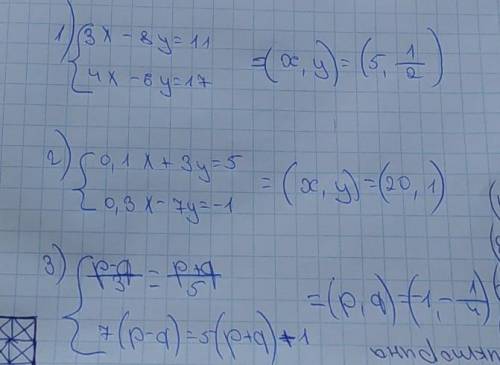 1) { 3x - 8y = 11
4x - 8y = 17 = (x, y) = (5, 1/2)
2) { 0,1x + 3y = 5
0,3x - 7y = -1 = (x, y) = (20, 1)
3) { p-q/3 = p+q/5
7(p-q) = 5(p+q) + 1 = (p, q) = (-1, -1/4)